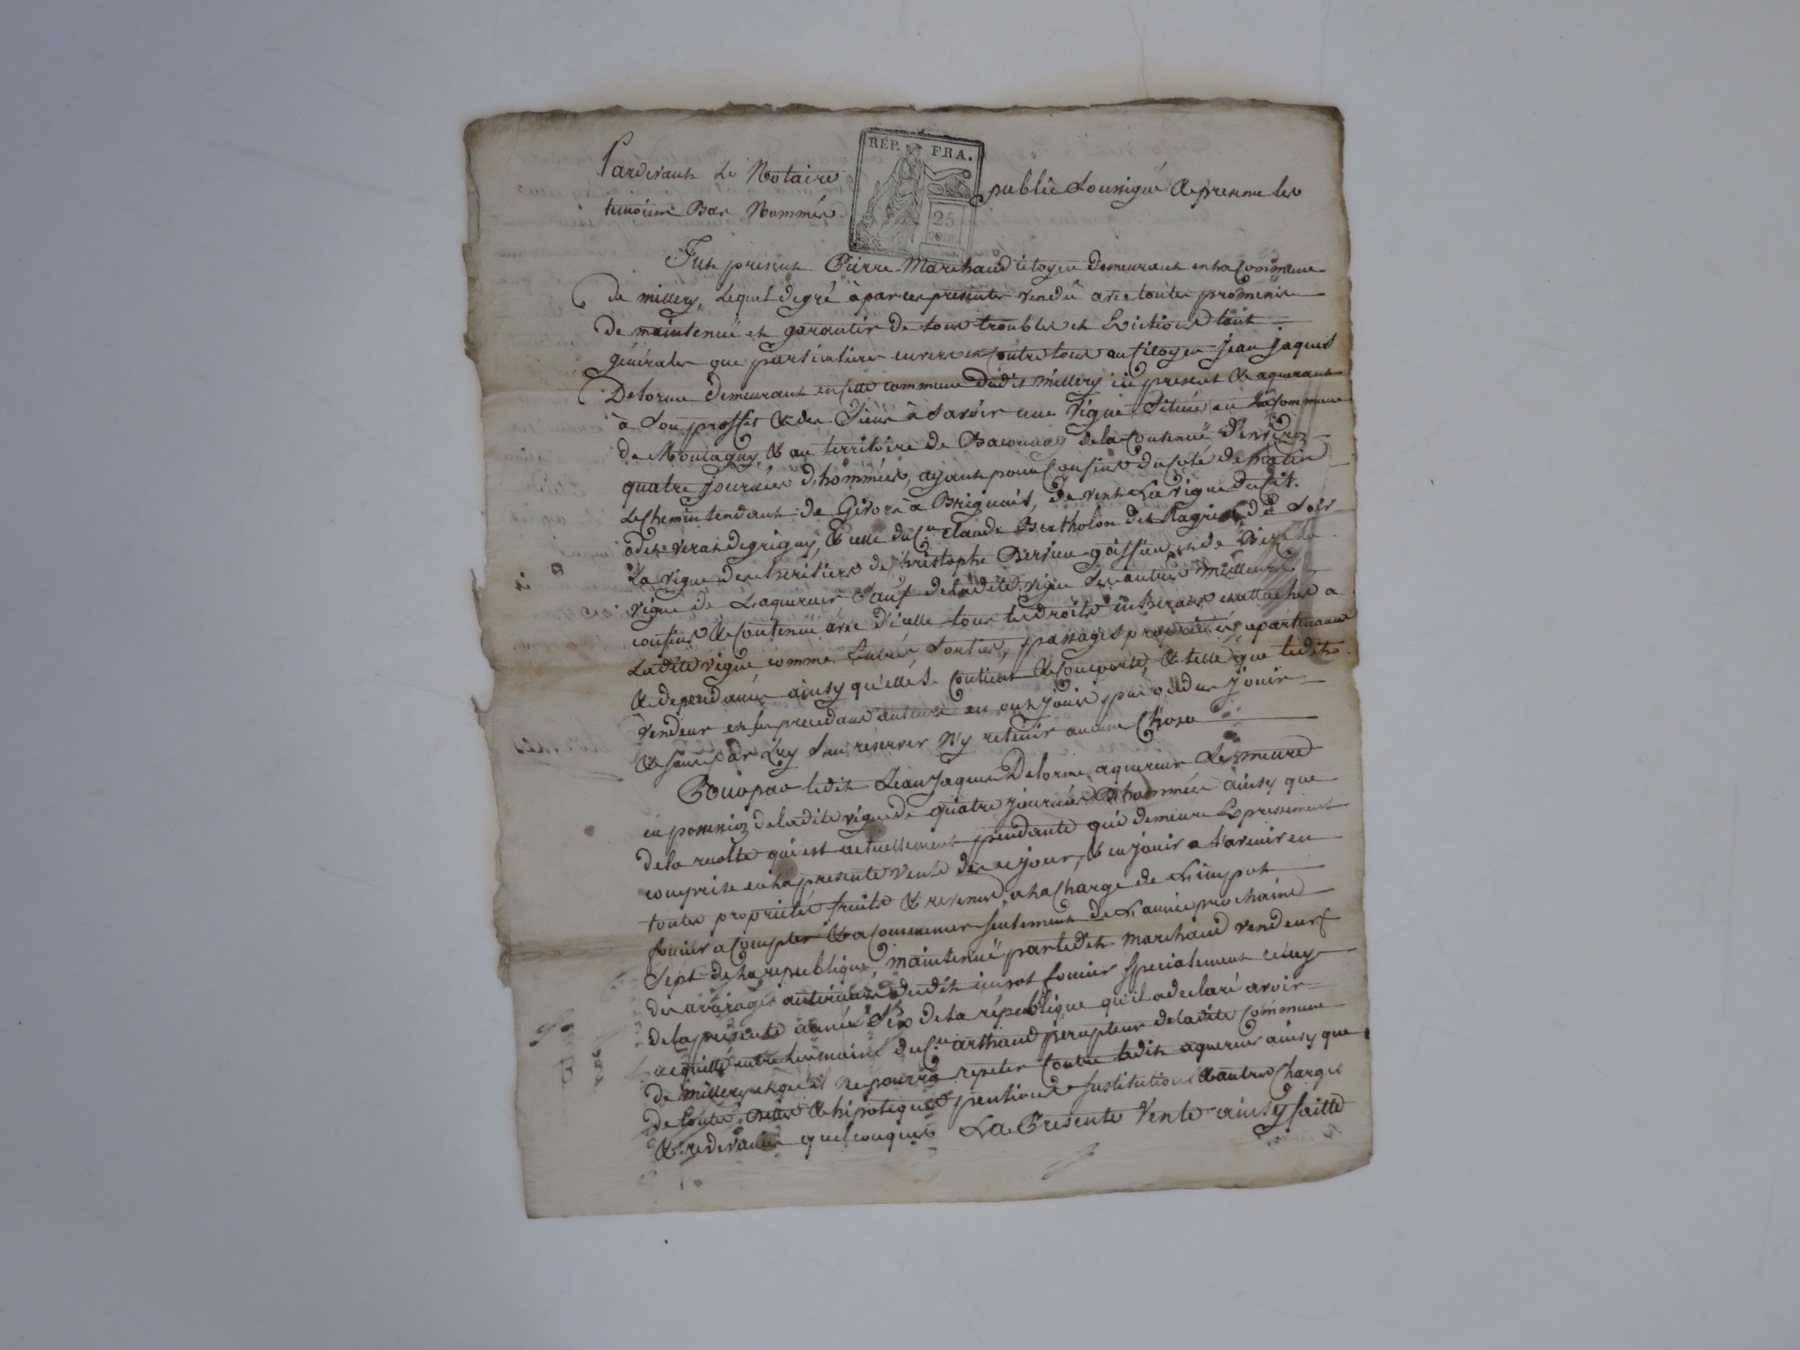 Pardevant Le Notaire
REP. FRA.
25
publie Soussigné & presence les
temoins Bas Nommés
Fut present Pierre Marchand citoyen demeurant en la Commune
de millery, Lequel de gré à par ces presentes vendu avec toutes promesse
de maintenuë et garantir de tous troubles et Evictions tant
générales que particulieres envers et Contre tous au Citoyen Jean Jaques
Delorme demeurant en cette commune dudit Millery ici present & aquerant
à Son proffit & des Siens à Savoir une Vigne Située en La Commune
de Montagny & au territoire de de la Contenuë d'environ
quatre journées d'hommées, ayant pour Confins du Coté de matin
Le Chemin tendant de Givors à Brignais, de vent La Vigne du Cit.
de grigny, & celle du Cn Claude Bertholon de de Soir
La vigne des heritiers de Christophe et de Bize la
vigne de Laquereur Sauf de ladite vigne Ses autres meilleurs
confins & Contenuë avec d'icelle tous les droits et attachés a
Ladite vigne comme Entrées Sorties, passages, propriétés, apartenances
& dependances ainsy qu'elle Se Contient & Comporte, & telle que ledit
vendeur et Ses precedans auteurs en ont jouis pu ou du jouir
& Sans par Luy Sen reserver N'y retenir aucune Chose
Pour par ledit Jean Jaques Delorme aquereur Se mettre
en possession de ladite vigne de quatre journées d'hommées ainsy que
de la recolte qui est actuellement pendante qui demeure Expressement
comprise en la presente vente des ce jour, & en jouir a l'avenir en
toutes proprietés fruits & revenus, a la Charge de L'impot
foncier a Compter & a Commencer seulement de L'année prochaine
Sept de la republique, maintenuë par ledit Marchand vendeur
des arairages anterieurs dudit impot foncier Specialement celuy
de la presente année Six de la république qu'il a declaré avoir
acquitté entre les mains du Cn arthaud percepteur de ladite Commune
de millery et qu'il ne pourra repeter Contre ledit aquereur ainsy que
de toutes dettes & hipoteques pentions Sustitutions & autres Charges
& redevances quelconques La Presente Vente ainsy faitte